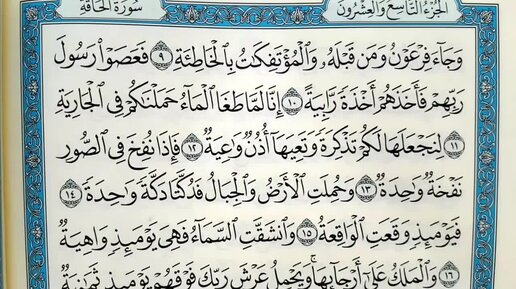 سُورَةُ الحَاقَّةِ
الجُزْءُ التَّاسِعُ وَالعِشْرُونَ
وَجَآءَ فِرْعَوْنُ وَمَن قَبْلَهُۥ وَٱلْمُؤْتَفِكَٰتُ بِٱلْخَاطِئَةِ ٩ فَعَصَوْا۟ رَسُولَ
رَبِّهِمْ فَأَخَذَهُمْ أَخْذَةً رَّابِيَةً ١٠ إِنَّا لَمَّا طَغَا ٱلْمَآءُ حَمَلْنَٰكُمْ فِى ٱلْجَارِيَةِ
١١ لِنَجْعَلَهَا لَكُمْ تَذْكِرَةً وَتَعِيَهَآ أُذُنٌ وَٰعِيَةٌ ١٢ فَإِذَا نُفِخَ فِى ٱلصُّورِ
نَفْخَةٌ وَٰحِدَةٌ ١٣ وَحُمِلَتِ ٱلْأَرْضُ وَٱلْجِبَالُ فَدُكَّتَا دَكَّةً وَٰحِدَةً ١٤
فَيَوْمَئِذٍ وَقَعَتِ ٱلْوَاقِعَةُ ١٥ وَٱنشَقَّتِ ٱلسَّمَآءُ فَهِىَ يَوْمَئِذٍ وَاهِيَةٌ
١٦ وَٱلْمَلَكُ عَلَىٰٓ أَرْجَآئِهَا ۚ وَيَحْمِلُ عَرْشَ رَبِّكَ فَوْقَهُمْ يَوْمَئِذٍ ثَمَٰنِيَةٌ